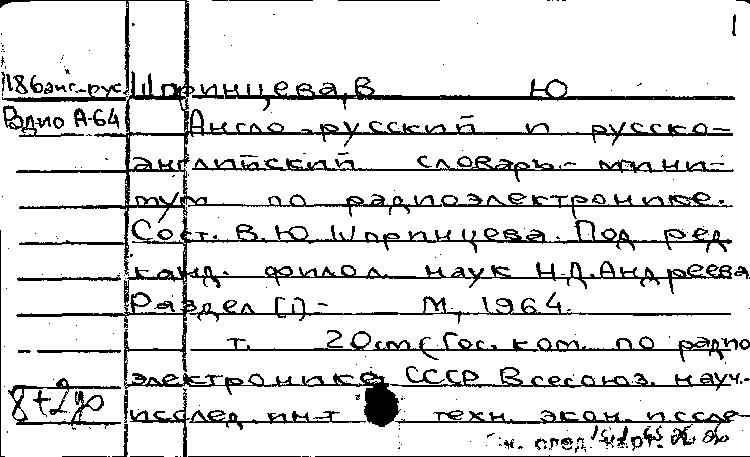 1
186 анг-рус Шпринцева, В Ю
Радио А-64 Англо-русский и русско-
английский словарь-мини-
мум по радиоэлектронике.
Сост. В. Ю Шпринцева. Под ред
канд. филол. наук Н.Д. Андреева
Раздел [1]- М, 1964.
т. 20 см (Гос. ком. по радио
электронике СССР Всесоюз. науч.-
исслед. ин-т техн. экон. иссле-
См. след.